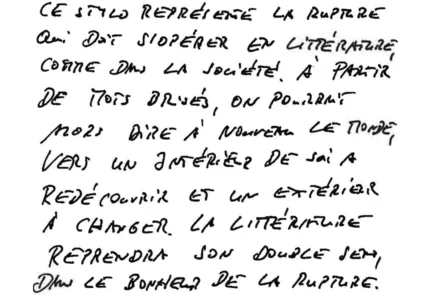 CE STYLO REPRÉSENTE LA RUPTURE
QUI DOIT S'OPÉRER EN LITTÉRATURE,
COMME DANS LA SOCIÉTÉ. À PARTIR
DE MOTS BRISÉS, ON POURRAIT
ALORS DIRE À NOUVEAU LE MONDE,
VERS UN INTÉRIEUR DE SOI A
REDÉCOUVRIR ET UN EXTÉRIEUR
À CHANGER. LA LITTÉRATURE
REPRENDRA SON DOUBLE SENS,
DANS LE BONHEUR DE LA RUPTURE.